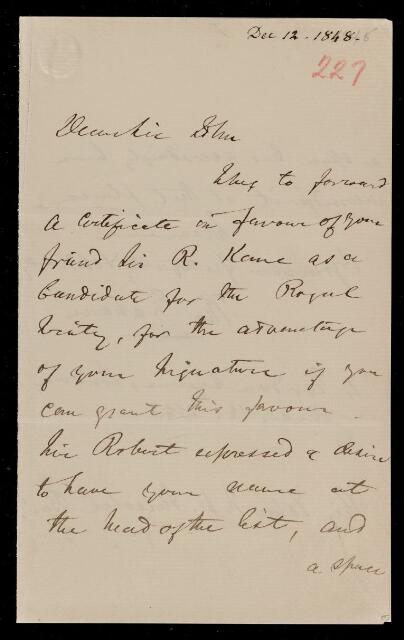 Dec 12 - 1848 -
227
Dear Sir John
I beg to forward
a Certificate in favour of your
friend Sir R. Kane as a
Candidate for the Royal
Society, for the advantage
of your Signature if you
can grant this favour.
Sir Robert expressed a desire
to have your name at
the head of the list, and
a space